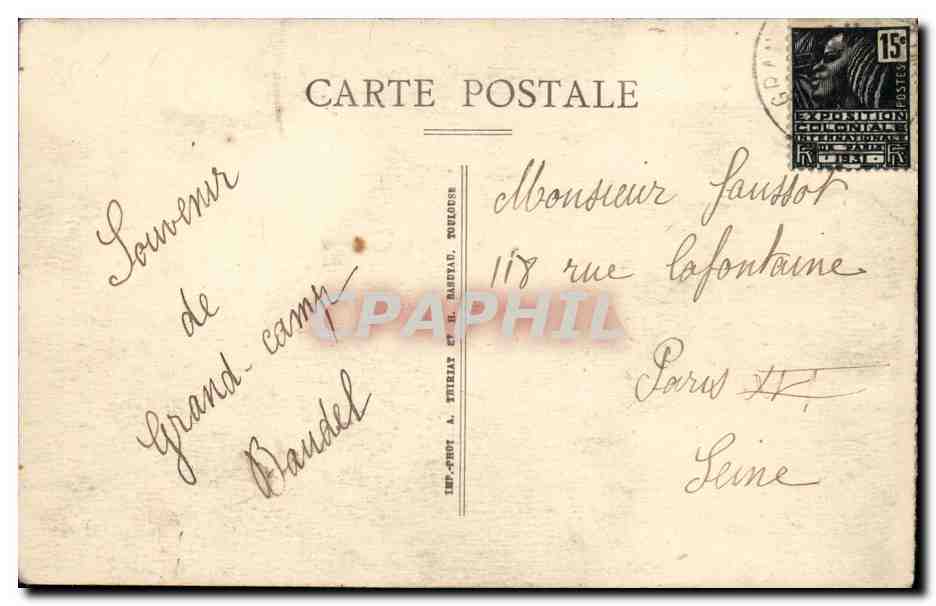 CARTE POSTALE
15c
POSTES
EXPOSITION
COLONIALE
INTERNATIONALE
DE PARIS
1931
GRAN
Souvenir
de
Grand-camp
Baudel
IMP.-PHOT A. THIRIAT ET H. BASUYAU, TOULOUSE
Monsieur Saussot
118 rue Lafontaine
Paris XVI
Seine
CPAPHIL